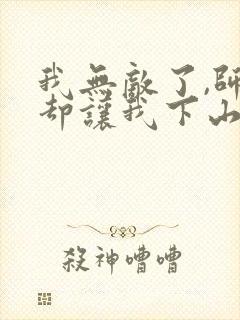 我無敵了,師
却讓我下山
殺神嘈嘈